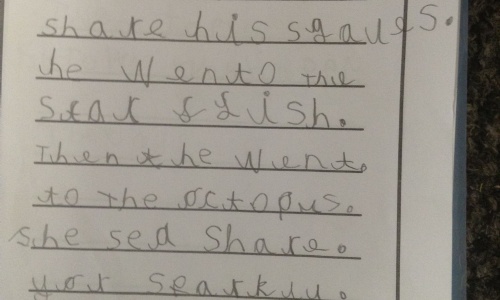 share his sgaues.
he wento the
star ffish.
Then the went.
to the octopus.
she sed share.
yor searkuu.